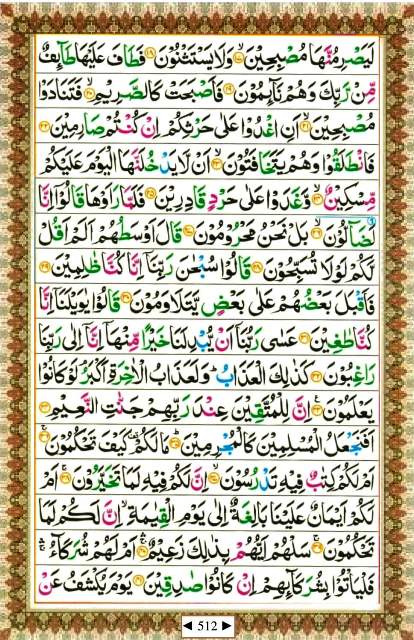 لَيَصْرِمُنَّهَا مُصْبِحِيْنَ ۙ﴿۱۷﴾ وَلَا يَسْتَثْنُوْنَ ﴿۱۸﴾ فَطَافَ عَلَيْهَا طَآئِفٌ
مِّنْ رَّبِّكَ وَهُمْ نَآئِمُوْنَ ﴿۱۹﴾ فَاَصْبَحَتْ كَالصَّرِيْمِ ۙ﴿۲۰﴾ فَتَنَادَوْا
مُصْبِحِيْنَ ۙ﴿۲۱﴾ اَنِ اغْدُوْا عَلٰى حَرْثِكُمْ اِنْ كُنْتُمْ صَارِمِيْنَ ﴿۲۲﴾
فَانْطَلَقُوْا وَهُمْ يَتَخَافَتُوْنَ ۙ﴿۲۳﴾ اَنْ لَّا يَدْخُلَنَّهَا الْيَوْمَ عَلَيْكُمْ
مِّسْكِيْنٌ ۙ﴿۲۴﴾ وَّغَدَوْا عَلٰى حَرْدٍ قَادِرِيْنَ ﴿۲۵﴾ فَلَمَّا رَاَوْهَا قَالُوْۤا اِنَّا
لَضَآلُّوْنَ ۙ﴿۲۶﴾ بَلْ نَحْنُ مَحْرُوْمُوْنَ ﴿۲۷﴾ قَالَ اَوْسَطُهُمْ اَلَمْ اَقُلْ
لَّكُمْ لَوْلَا تُسَبِّحُوْنَ ﴿۲۸﴾ قَالُوْا سُبْحٰنَ رَبِّنَاۤ اِنَّا كُنَّا ظٰلِمِيْنَ ﴿۲۹﴾
فَاَقْبَلَ بَعْضُهُمْ عَلٰى بَعْضٍ يَّتَلَاوَمُوْنَ ﴿۳۰﴾ قَالُوْا يٰوَيْلَنَاۤ اِنَّا
كُنَّا طٰغِيْنَ ﴿۳۱﴾ عَسٰى رَبُّنَاۤ اَنْ يُّبْدِلَنَا خَيْرًا مِّنْهَاۤ اِنَّاۤ اِلٰى رَبِّنَا
رَاغِبُوْنَ ﴿۳۲﴾ كَذٰلِكَ الْعَذَابُ ؕ وَلَعَذَابُ الْاٰخِرَةِ اَكْبَرُ ۘ لَوْ كَانُوْا
يَعْلَمُوْنَ ﴿۳۳﴾ اِنَّ لِلْمُتَّقِيْنَ عِنْدَ رَبِّهِمْ جَنّٰتِ النَّعِيْمِ ﴿۳۴﴾
اَفَنَجْعَلُ الْمُسْلِمِيْنَ كَالْمُجْرِمِيْنَ ؕ﴿۳۵﴾ مَا لَكُمْ ۥ كَيْفَ تَحْكُمُوْنَ ۚ﴿۳۶﴾
اَمْ لَكُمْ كِتٰبٌ فِيْهِ تَدْرُسُوْنَ ۙ﴿۳۷﴾ اِنَّ لَكُمْ فِيْهِ لَمَا تَخَيَّرُوْنَ ۚ﴿۳۸﴾ اَمْ
لَكُمْ اَيْمَانٌ عَلَيْنَا بَالِغَةٌ اِلٰى يَوْمِ الْقِيٰمَةِ ۙ اِنَّ لَكُمْ لَمَا
تَحْكُمُوْنَ ۚ﴿۳۹﴾ سَلْهُمْ اَيُّهُمْ بِذٰلِكَ زَعِيْمٌ ۚ﴿۴۰﴾ اَمْ لَهُمْ شُرَكَآءُ ۚ
فَلْيَاْتُوْا بِشُرَكَآئِهِمْ اِنْ كَانُوْا صٰدِقِيْنَ ﴿۴۱﴾ يَوْمَ يُكْشَفُ عَنْ
512